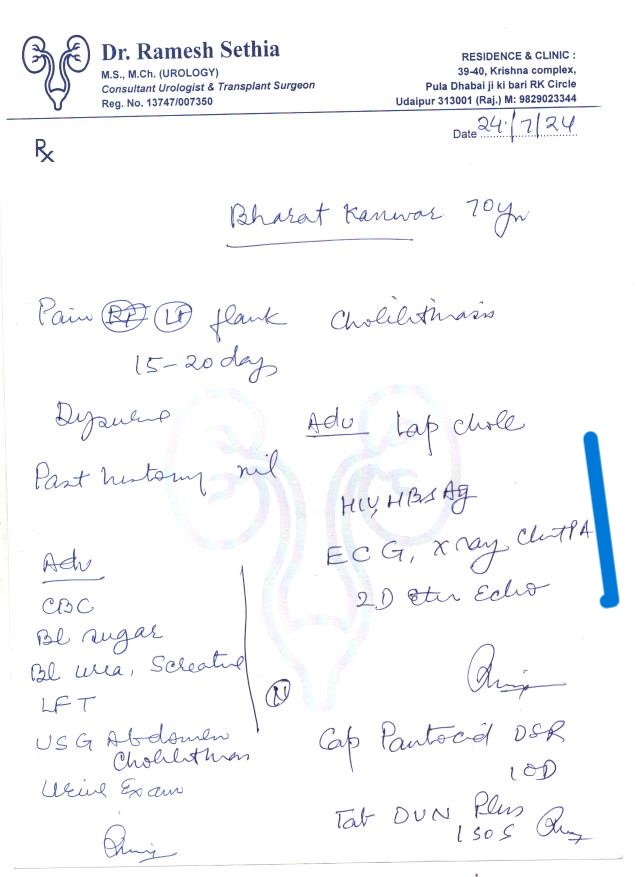 Dr. Ramesh Sethia
M.S., M.Ch. (UROLOGY)
Consultant Urologist & Transplant Surgeon
Reg. No. 13747/007350
RESIDENCE & CLINIC :
39-40, Krishna complex,
Pula Dhabai ji ki bari RK Circle
Udaipur 313001 (Raj.) M: 9829023344
Date 24/7/24
Rx
Bharat Kanwar 70yr
Pain Lt flank
15-20 days
Dysuria
Past history nil
Adv
CBC
Bl sugar
Bl urea, Screatine
LFT
USG Abdomen
Cholilithiasis
Urine Exam
N
Cholilithiasis
Adv Lap chole
HIV, HBSAg
ECG, x ray Chest PA
2D Echo
Cap Pantocid DSR
1 OD
Tab DUN Plus
1 SOS